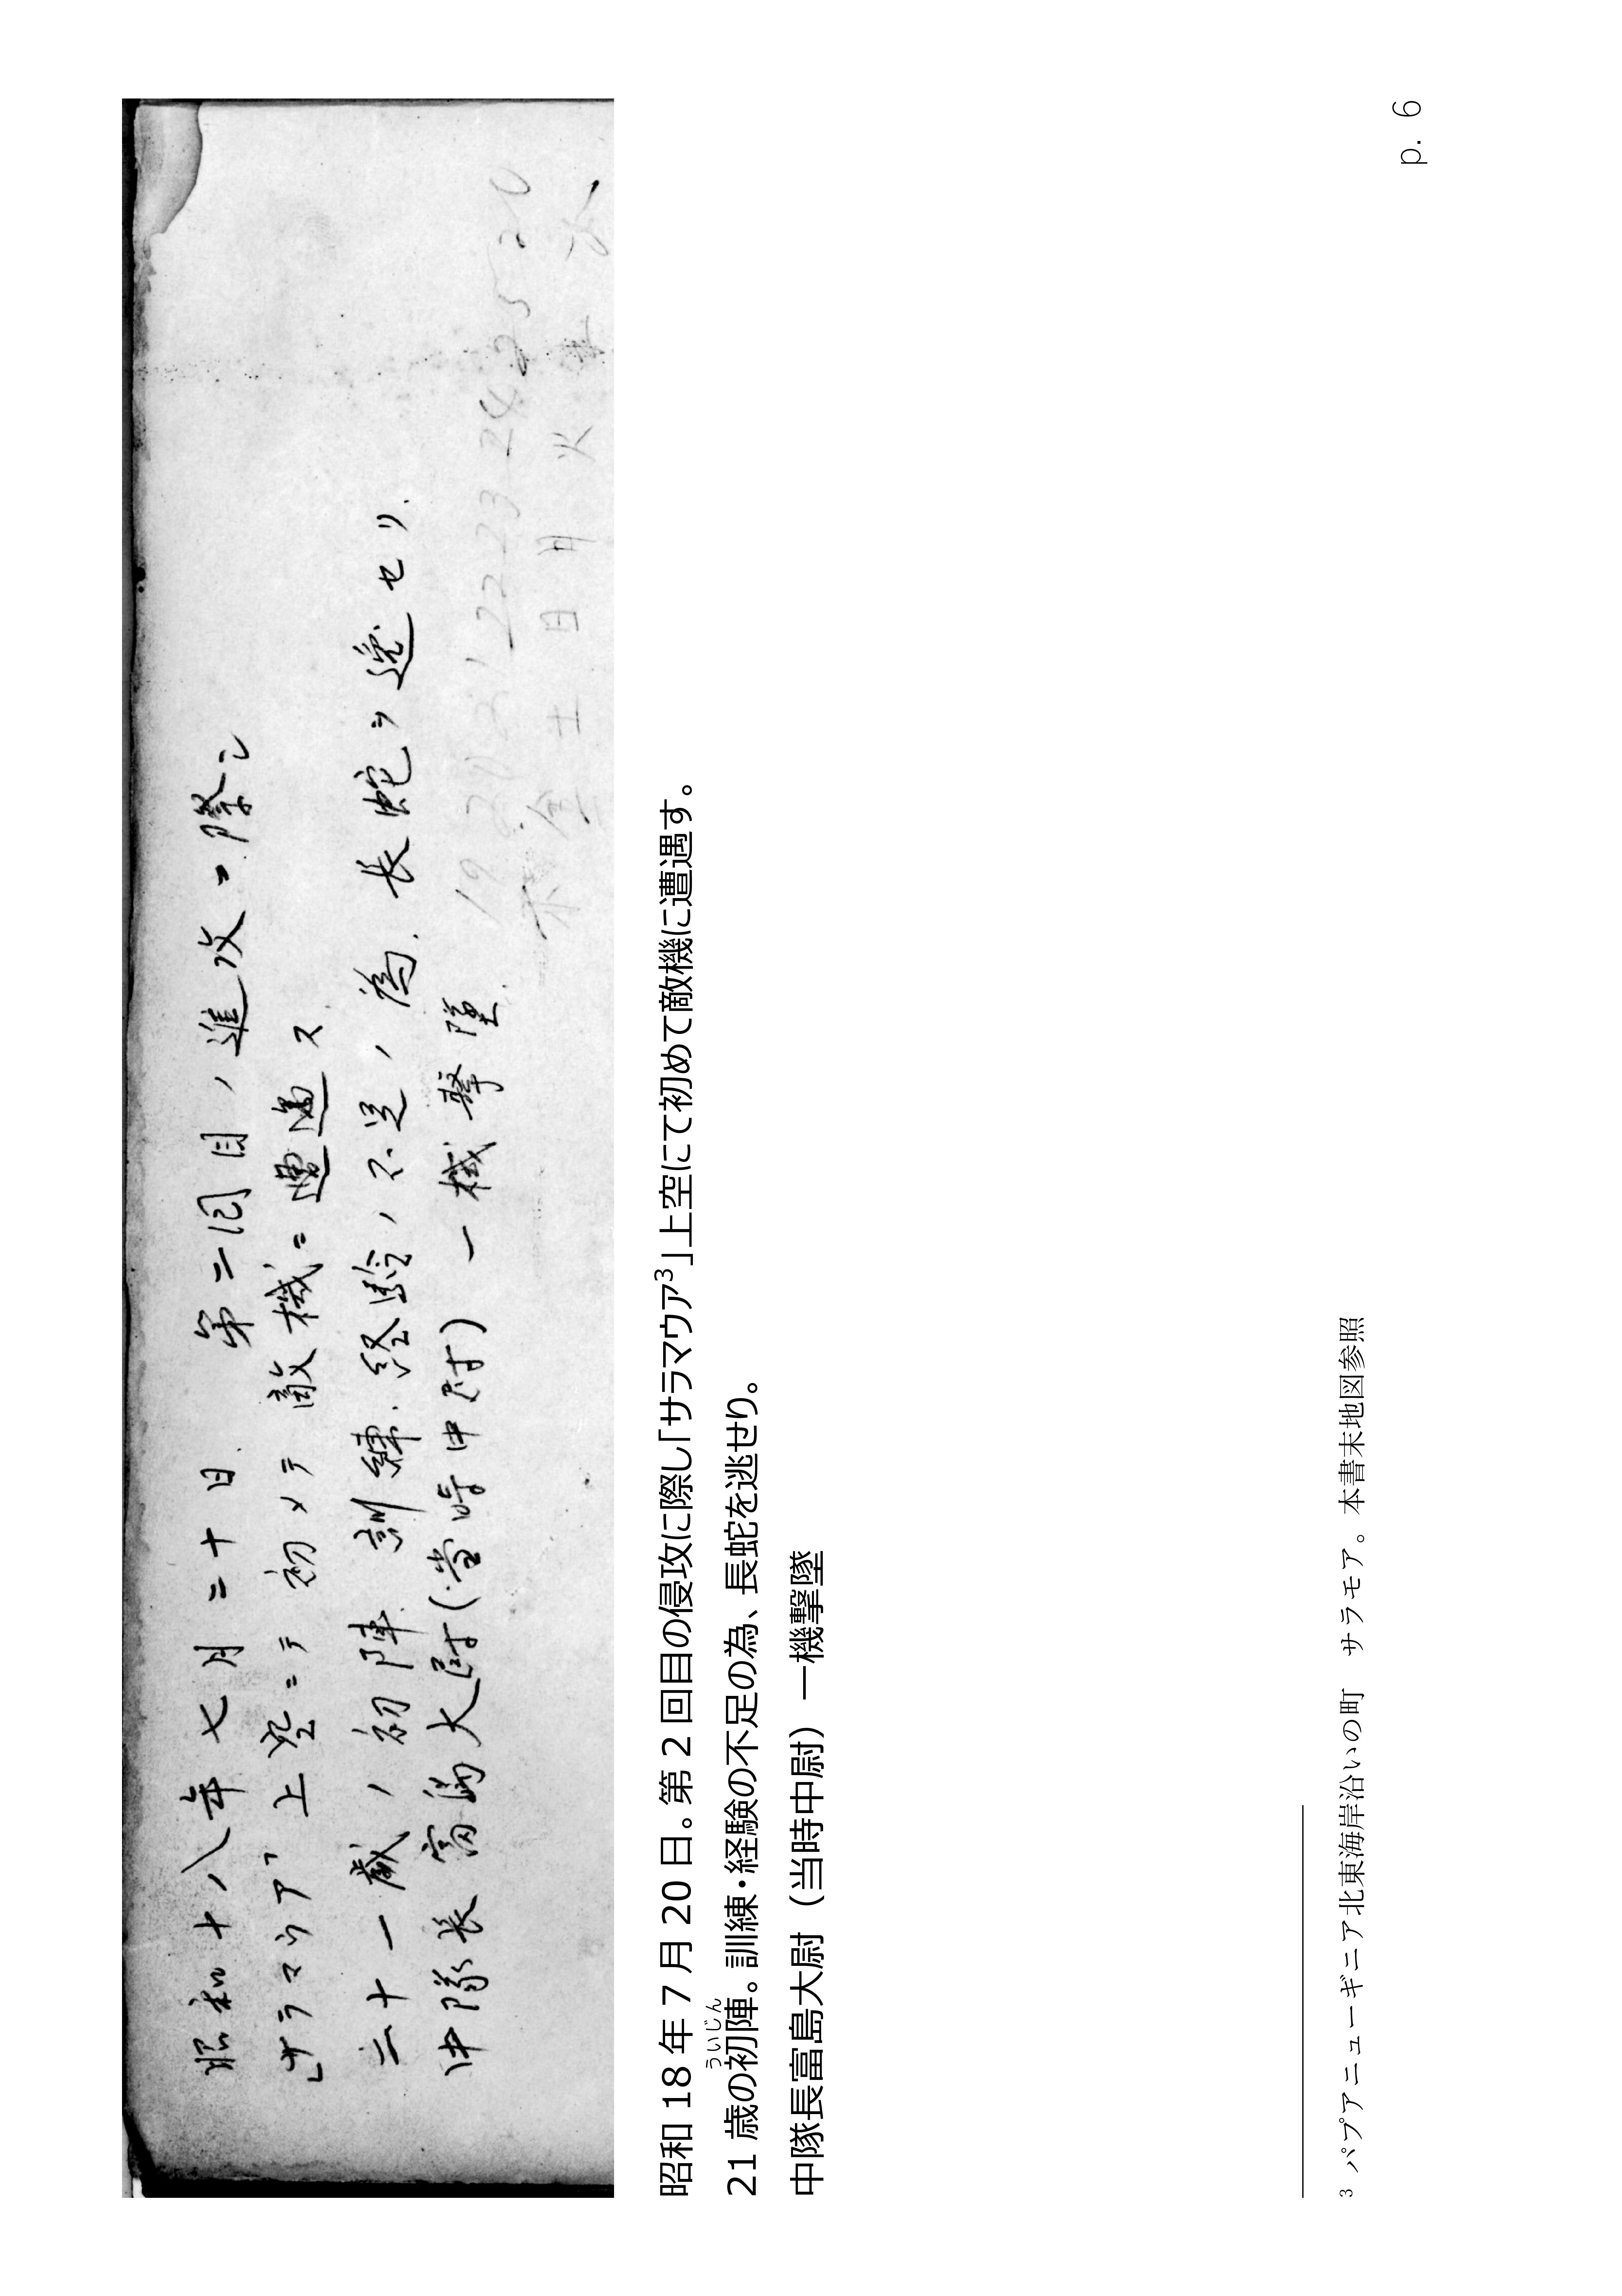 昭和十八年七月二十日. 第二回目ノ進攻ニ際シ
「サラマウア」上空ニテ初メテ敵機ニ遭遇ス
二十一歳ノ初陣. 訓練. 経験ノ不足ノ為. 長蛇ヲ逸セリ.
中隊長富島大尉(当時中尉) 一機撃墜.
19 20 21 22 23 24 25 26
木 金 土 日 月 火 水
昭和 18 年 7 月 20 日。第 2 回目の侵攻に際し「サラマウア3」上空にて初めて敵機に遭遇す。
21 歳の初陣。訓練・経験の不足の為、長蛇を逃せり。
ういじん
中隊長富島大尉（当時中尉）一機撃墜
3 パプアニューギニア北東海岸沿いの町　サラモア。本書末地図参照
p. 6